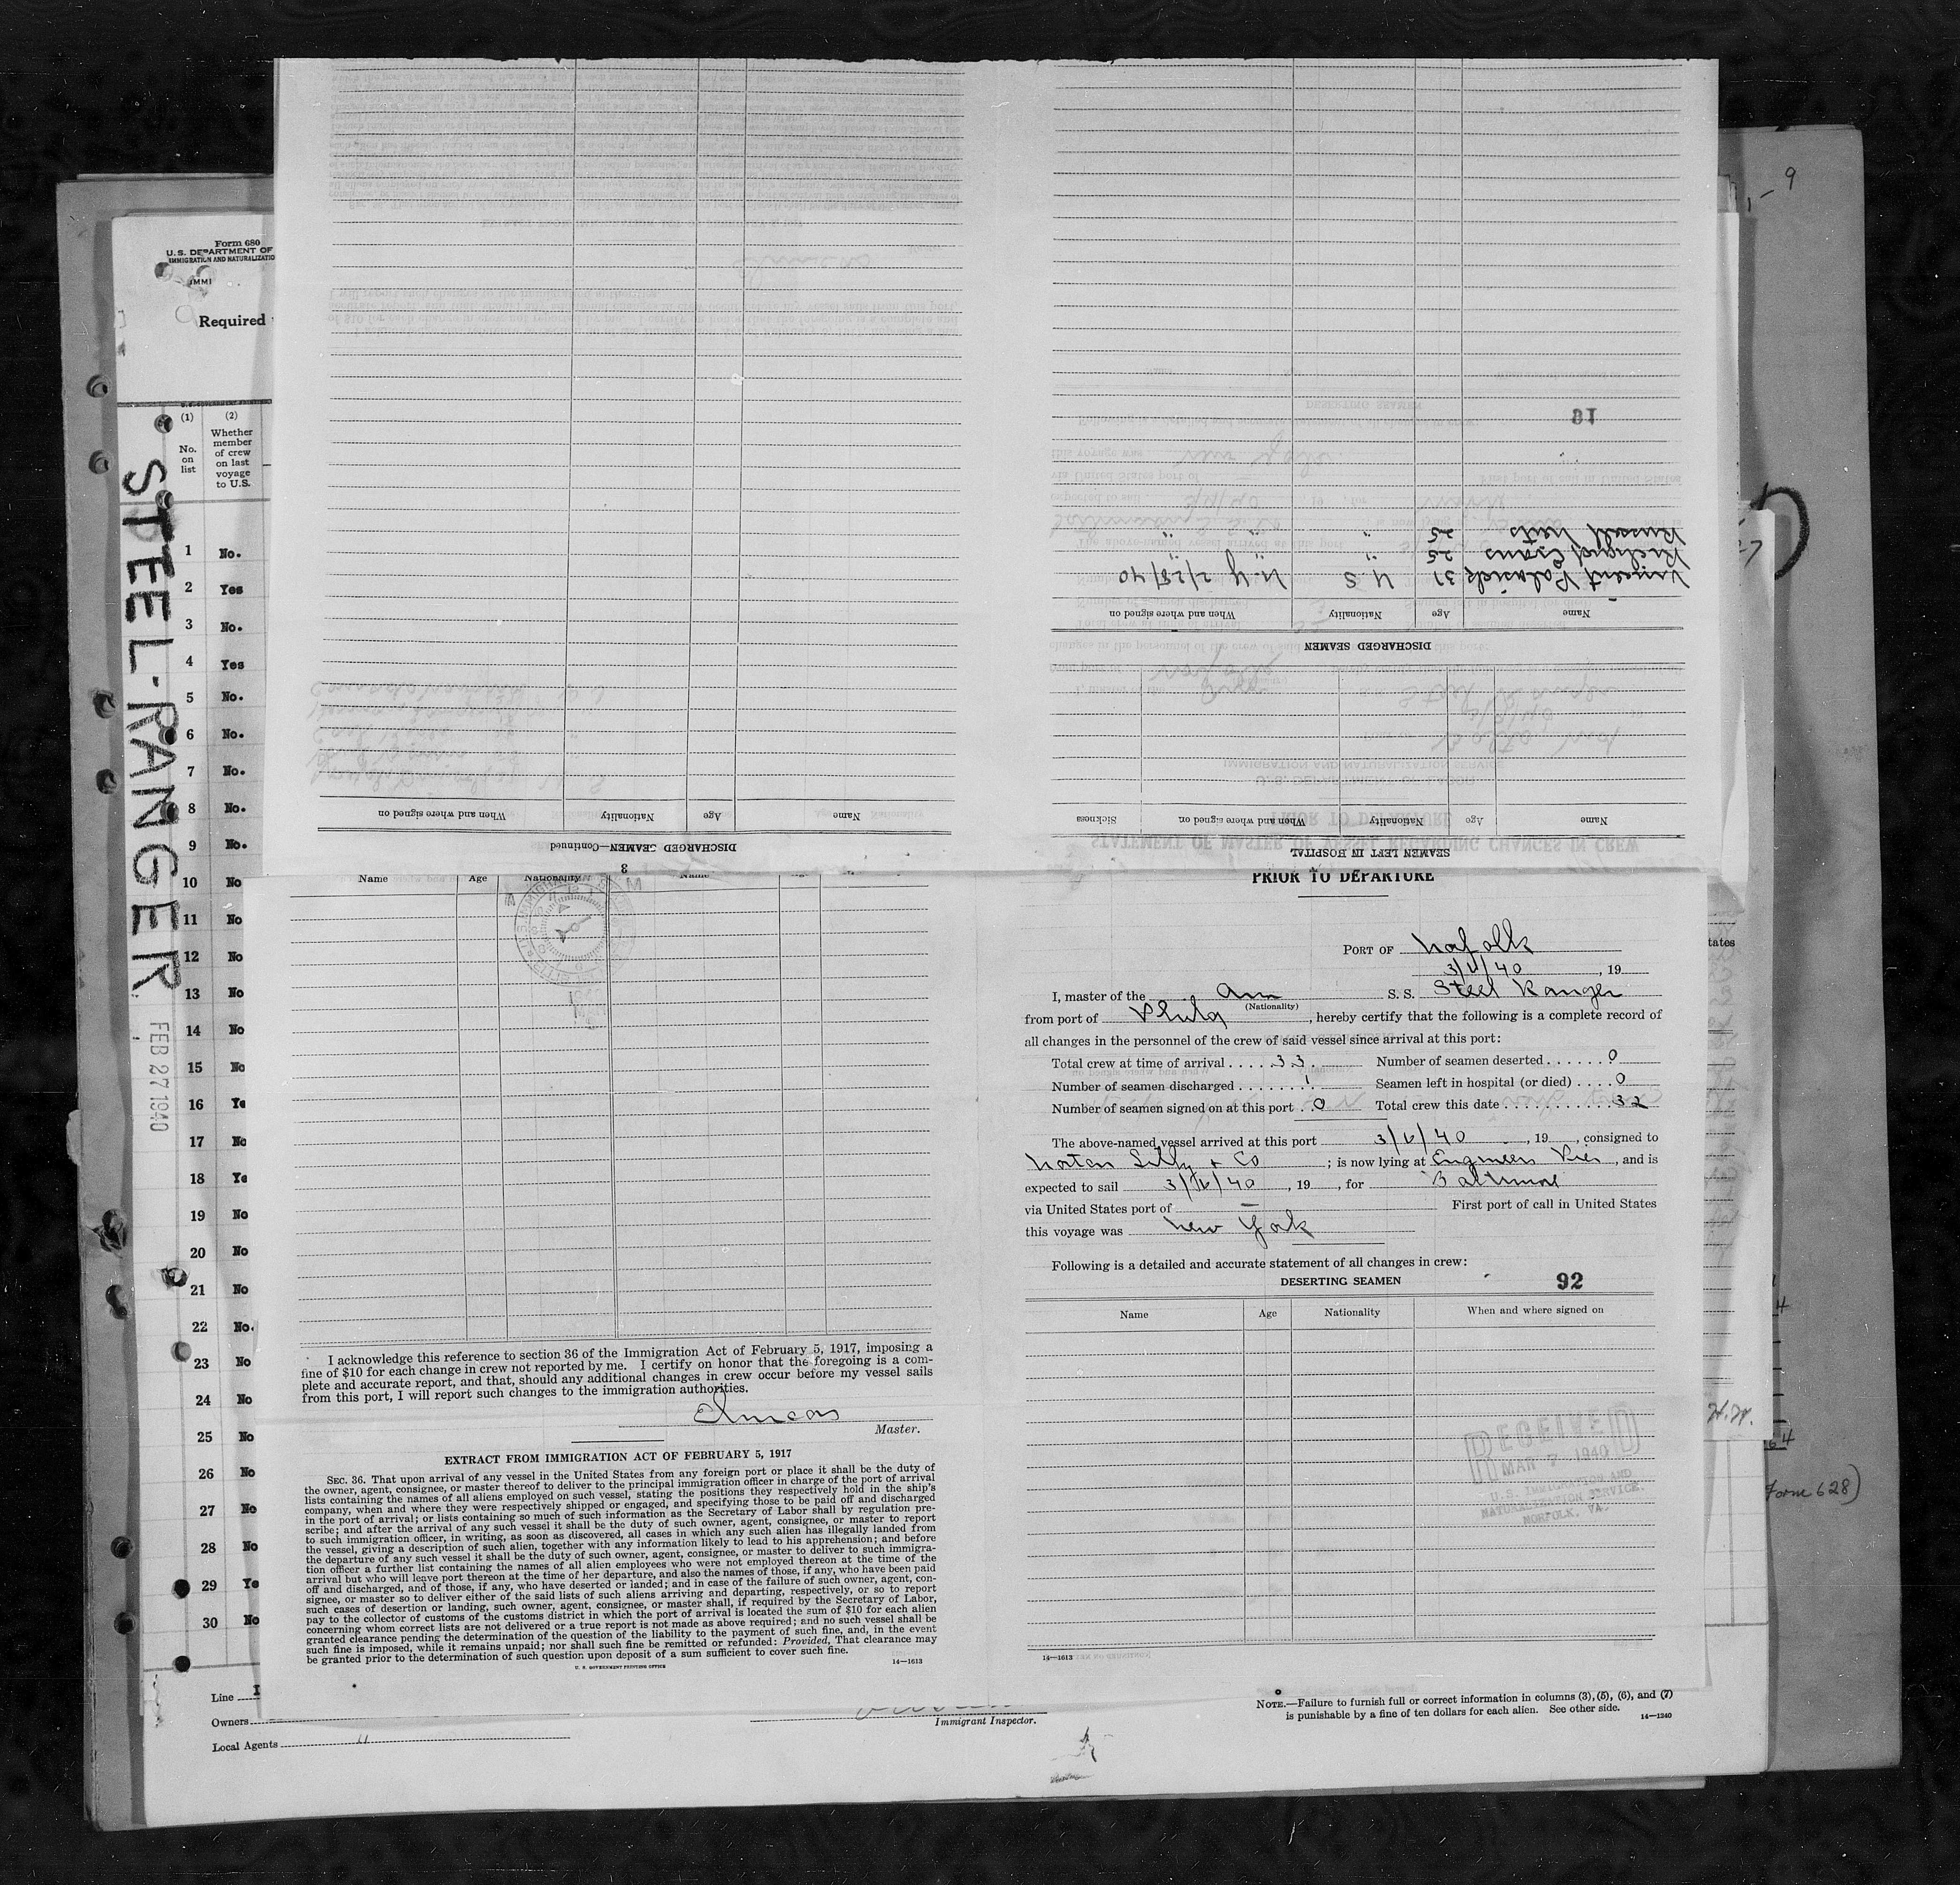 9
Form 680
U.S. DEPARTMENT OF
IMMIGRATION AND NATURALIZATIO
IMMI
Required
(1) (2)
No. on list
Whether member of crew on last voyage to U.S.
1 No.
2 Yes
3 No.
4 Yes
5 No.
6 No.
7 No.
8 No.
9 No.
10 No
11 No
12 No
13 No
14 No
15 No
16 Ye
17 No
18 Ye
19 No
20 No
21 No
22 No.
23 No
24 No
25 No
26 No
27 No
28 No
29 Ye
30 No
STEEL RANGER
FEB 27 1940
Line
Owners
Local Agents "
Immigrant Inspector.
NOTE.—Failure to furnish full or correct information in columns (3), (5), (6), and (7)
is punishable by a fine of ten dollars for each alien. See other side.
14—1240
tates
Form 628)
SEAMEN LEFT IN HOSPITAL
Name Age Nationality When and where signed on Sickness
DISCHARGED SEAMEN
Name Age Nationality When and where signed on
Vincent 31 U S N.Y 2/28/40
Richard Evans 25 " "
Russell 25 " "
3
DISCHARGED SEAMEN—Continued
Name Age Nationality When and where signed on
Name Age Nationality Name
I acknowledge this reference to section 36 of the Immigration Act of February 5, 1917, imposing a
fine of $10 for each change in crew not reported by me. I certify on honor that the foregoing is a com-
plete and accurate report, and that, should any additional changes in crew occur before my vessel sails
from this port, I will report such changes to the immigration authorities.
Master.
EXTRACT FROM IMMIGRATION ACT OF FEBRUARY 5, 1917
SEC. 36. That upon arrival of any vessel in the United States from any foreign port or place it shall be the duty of
the owner, agent, consignee, or master thereof to deliver to the principal immigration officer in charge of the port of arrival
lists containing the names of all aliens employed on such vessel, stating the positions they respectively hold in the ship's
company, when and where they were respectively shipped or engaged, and specifying those to be paid off and discharged
in the port of arrival; or lists containing so much of such information as the Secretary of Labor shall by regulation pre-
scribe; and after the arrival of any such vessel it shall be the duty of such owner, agent, consignee, or master to report
to such immigration officer, in writing, as soon as discovered, all cases in which any such alien has illegally landed from
the vessel, giving a description of such alien, together with any information likely to lead to his apprehension; and before
the departure of any such vessel it shall be the duty of such owner, agent, consignee, or master to deliver to such immigra-
tion officer a further list containing the names of all alien employees who were not employed thereon at the time of the
arrival but who will leave port thereon at the time of her departure, and also the names of those, if any, who have been paid
off and discharged, and of those, if any, who have deserted or landed; and in case of the failure of such owner, agent, con-
signee, or master so to deliver either of the said lists of such aliens arriving and departing, respectively, or so to report
such cases of desertion or landing, such owner, agent, consignee, or master shall, if required by the Secretary of Labor,
pay to the collector of customs of the customs district in which the port of arrival is located the sum of $10 for each alien
concerning whom correct lists are not delivered or a true report is not made as above required; and no such vessel shall be
granted clearance pending the determination of the question of the liability to the payment of such fine, and, in the event
such fine is imposed, while it remains unpaid; nor shall such fine be remitted or refunded: Provided, That clearance may
be granted prior to the determination of such question upon deposit of a sum sufficient to cover such fine.
U. S. GOVERNMENT PRINTING OFFICE
14—1613
PRIOR TO DEPARTURE
PORT OF Norfolk
3/6/40, 19
I, master of the Am S. S. Steel Ranger
(Nationality)
from port of Phila, hereby certify that the following is a complete record of
all changes in the personnel of the crew of said vessel since arrival at this port:
Total crew at time of arrival 33 Number of seamen deserted 0
Number of seamen discharged 1 Seamen left in hospital (or died) 0
Number of seamen signed on at this port 0 Total crew this date 32
The above-named vessel arrived at this port 3/6/40, 19, consigned to
Norton Lilly & Co; is now lying at Engineers Pier, and is
expected to sail 3/6/40, 19, for Baltimore
via United States port of — First port of call in United States
this voyage was New York
Following is a detailed and accurate statement of all changes in crew:
DESERTING SEAMEN 92
Name Age Nationality When and where signed on
RECEIVED
MAR 7 1940
U.S. IMMIGRATION AND
NATURALIZATION SERVICE.
NORFOLK, VA.
14—1613